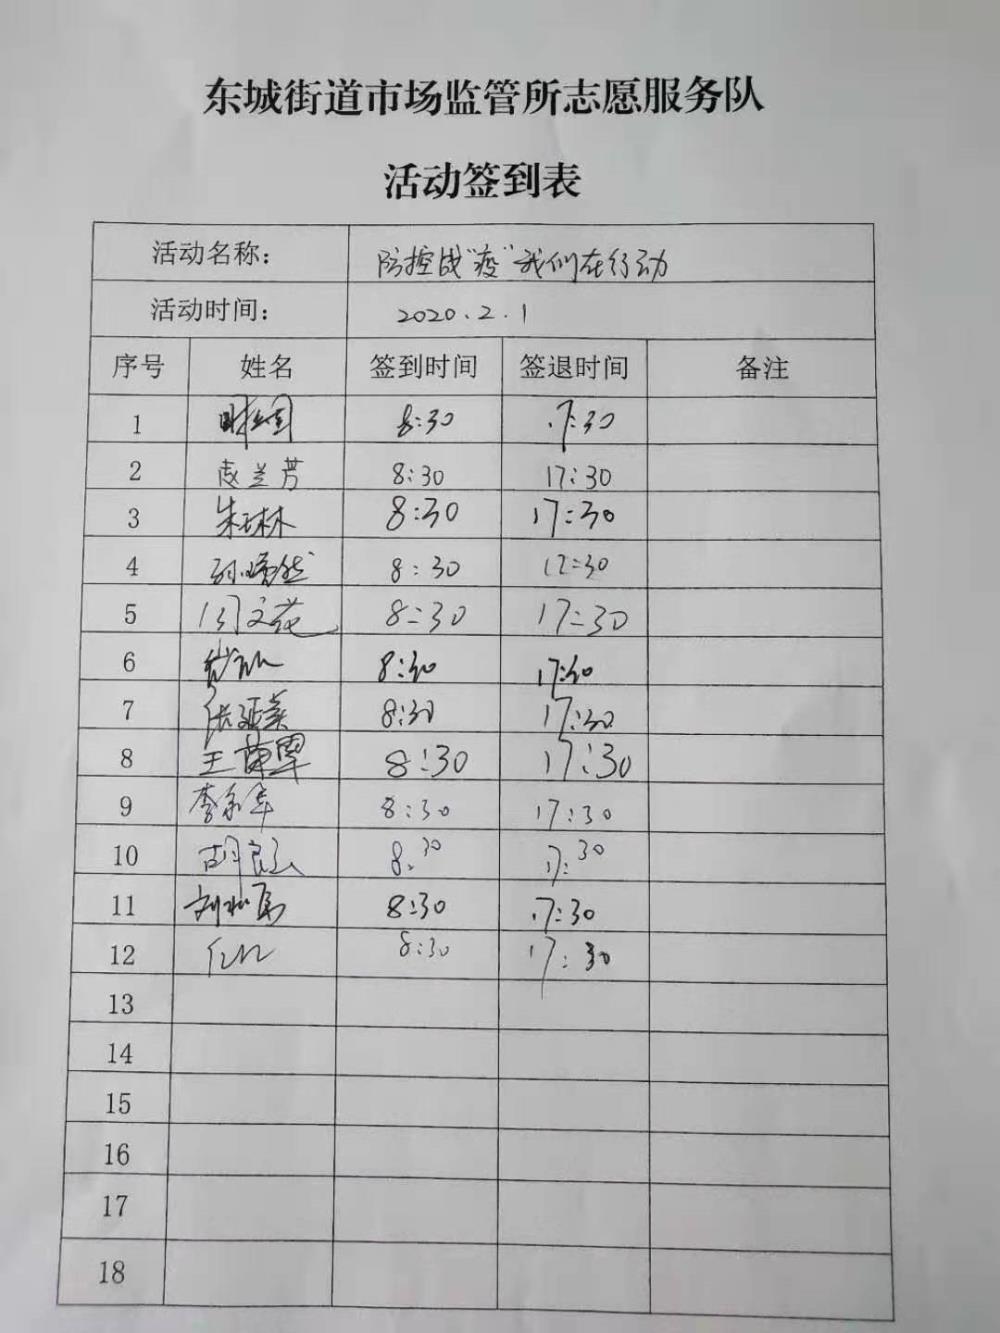 东城街道市场监管所志愿服务队
活动签到表
活动名称： 防控战“疫”我们在行动
活动时间： 2020.2.1
序号 姓名 签到时间 签退时间 备注
1 8:30 17:30
2 8:30 17:30
3 朱琳琳 8:30 17:30
4 8:30 17:30
5 闫文花 8:30 17:30
6 8:30 17:30
7 张延美 8:30 17:30
8 8:30 17:30
9 8:30 17:30
10 胡良弘 8:30 17:30
11 8:30 17:30
12 8:30 17:30
13
14
15
16
17
18